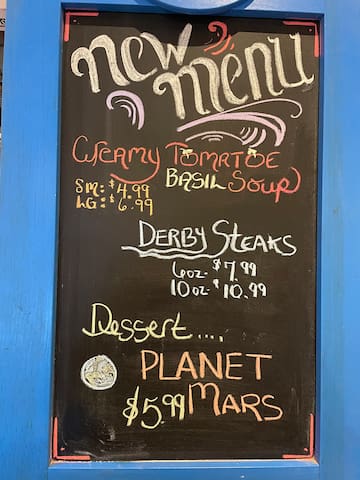 new
menu
Creamy Tomatoe
Basil Soup
SM: $4.99
LG: $6.99
Derby Steaks
6oz- $7.99
10oz- $10.99
Dessert....
PLANET
$5.99 MARS